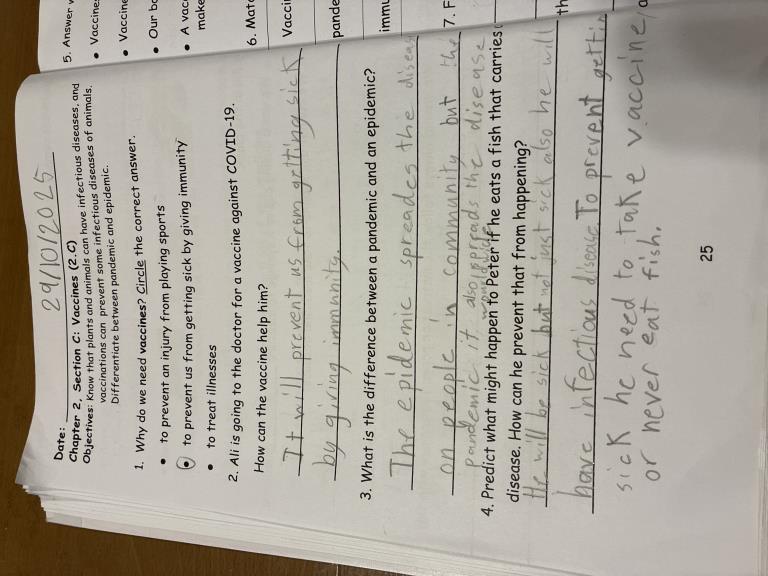 Date: 29/10/2025
Chapter 2, Section C: Vaccines (2.C)
Objectives: Know that plants and animals can have infectious diseases, and
vaccinations can prevent some infectious diseases of animals.
Differentiate between pandemic and epidemic.
1. Why do we need vaccines? Circle the correct answer.
• to prevent an injury from playing sports
• to prevent us from getting sick by giving immunity
• to treat illnesses
2. Ali is going to the doctor for a vaccine against COVID-19.
How can the vaccine help him?
It will prevent us from getting sick
by giving immunity.
3. What is the difference between a pandemic and an epidemic?
The epidemic spreades the diseas
on people in community but the
pandemic it also spreads the disease
world wide
4. Predict what might happen to Peter if he eats a fish that carries
disease. How can he prevent that from happening?
He will be sick but not just sick also he will
have infectious disease To prevent gettin
sick he need to take vaccine,
or never eat fish.
25
5. Answer
• Vaccine
• Vaccine
• Our bo
• A vacc
make
6. Mat
Vacci
pande
immu
7. F
th